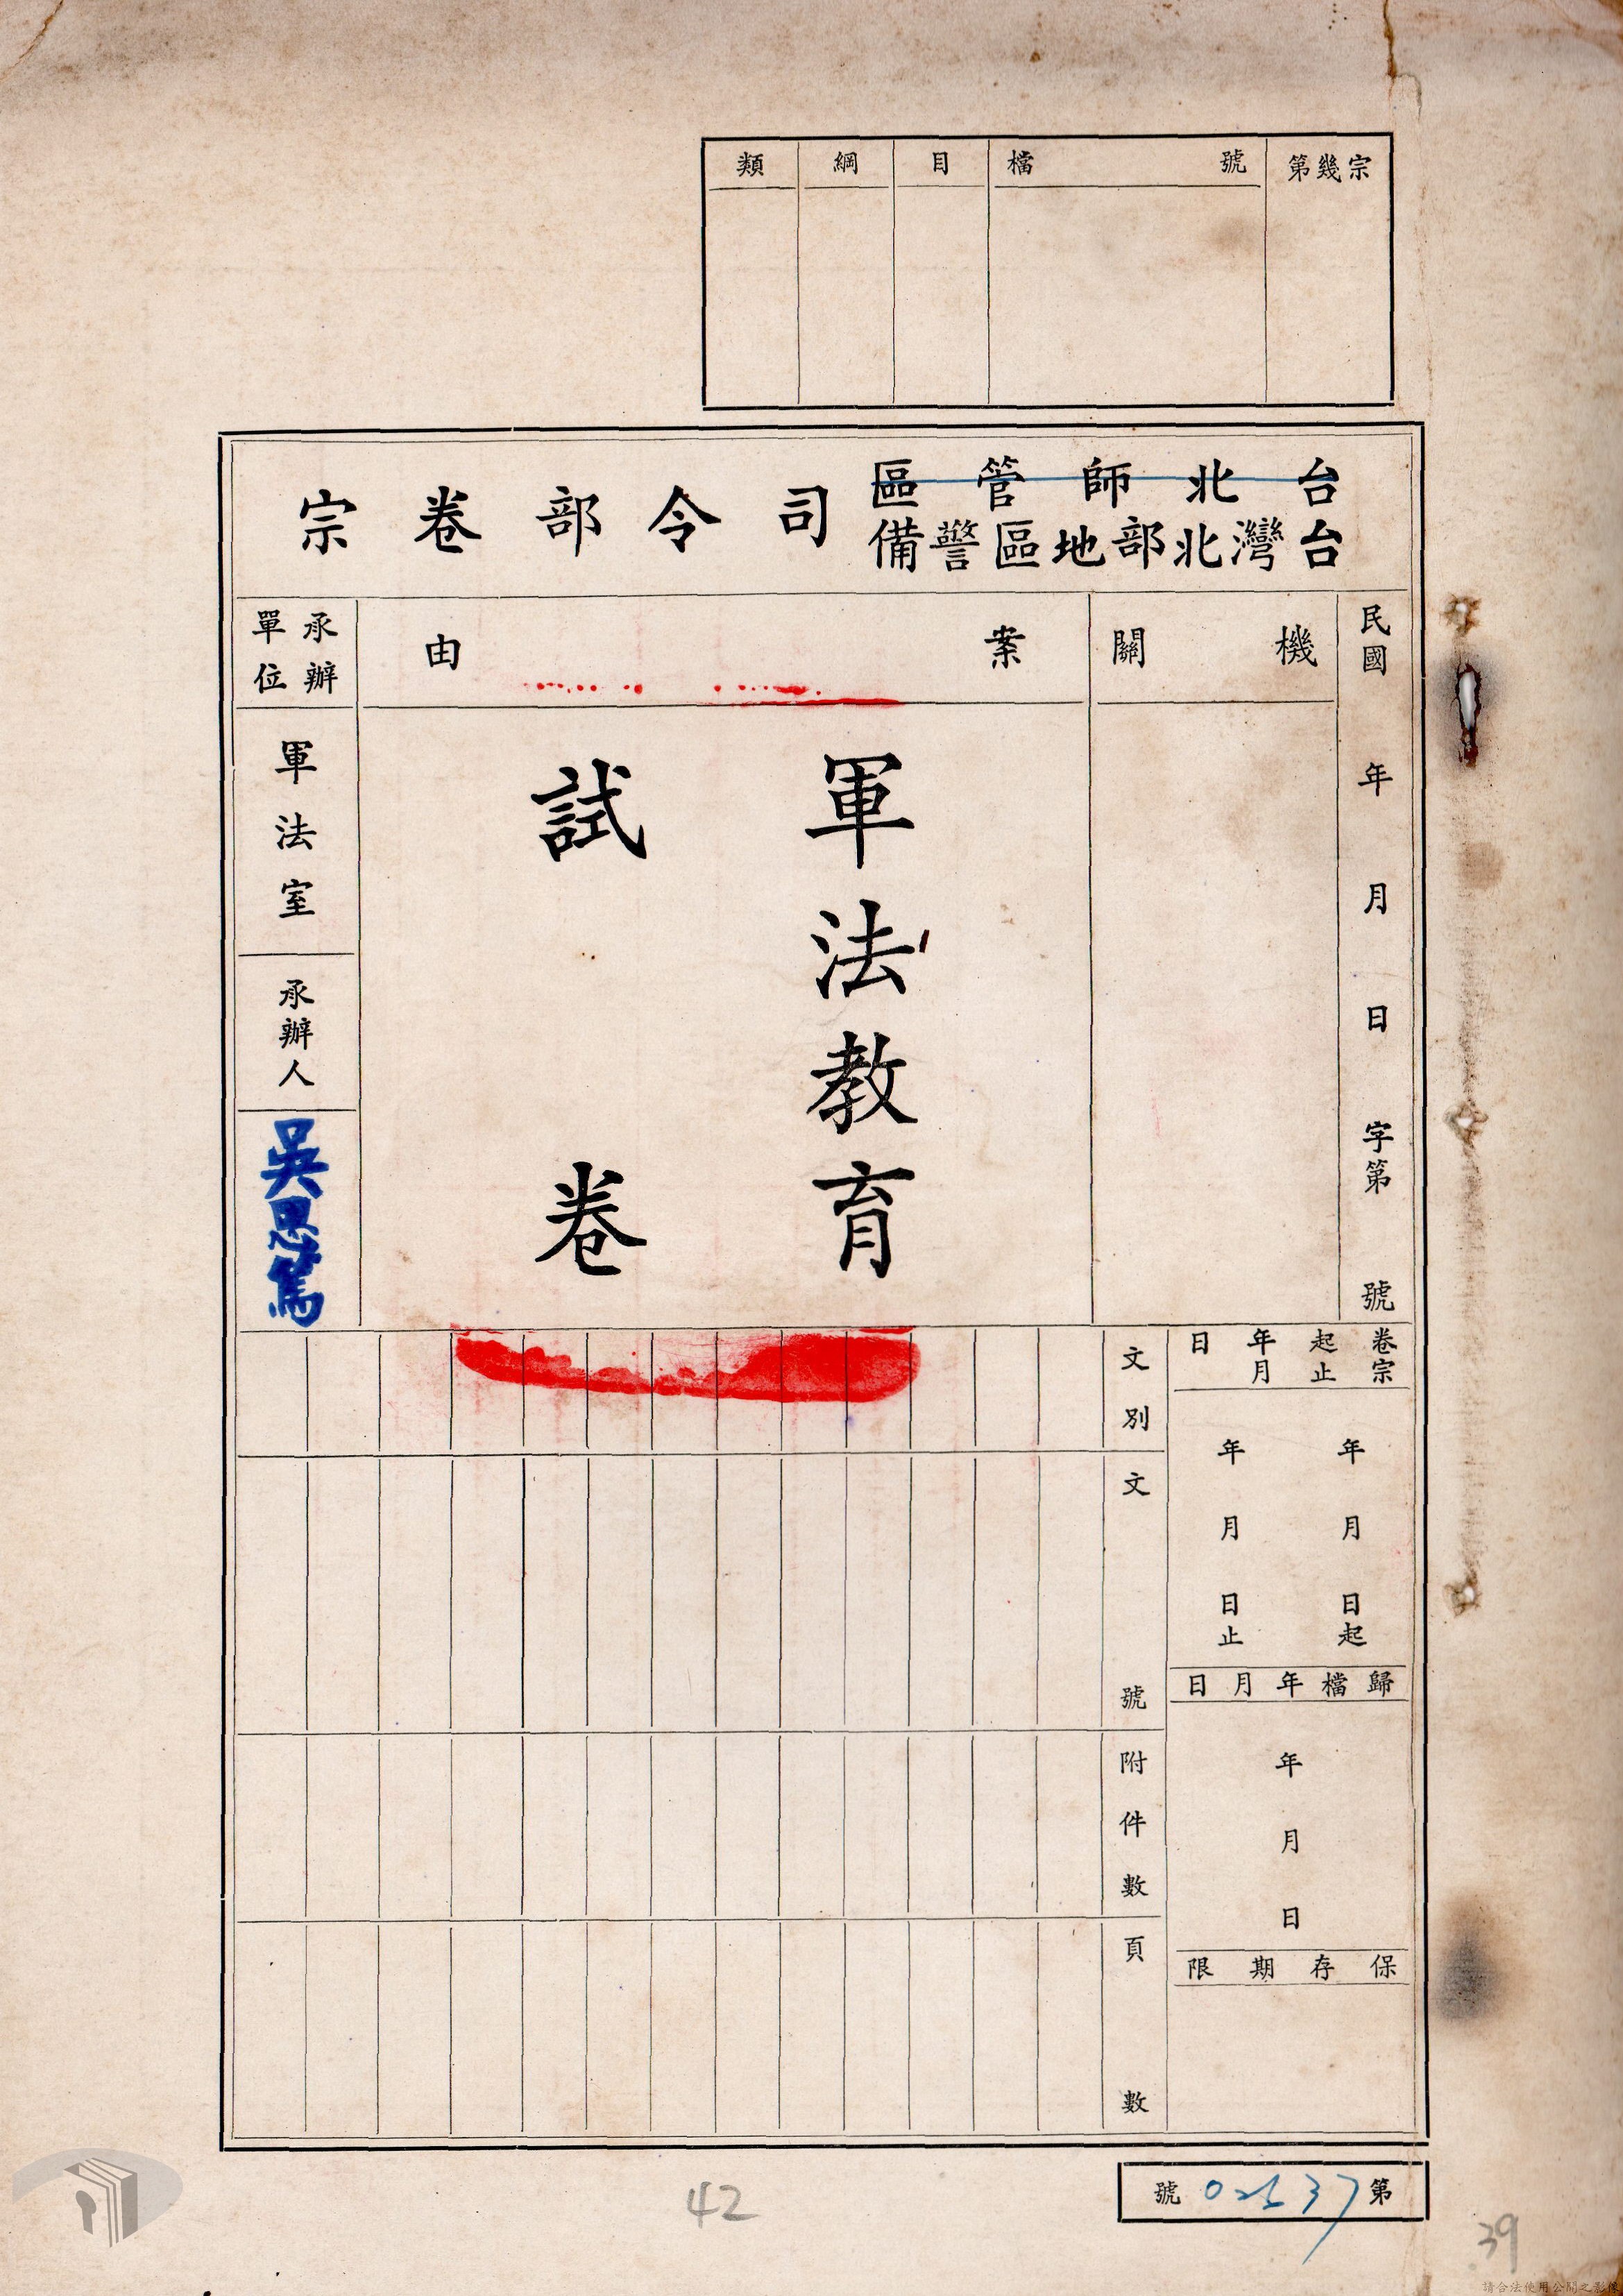 類 綱 目 檔號 第幾宗
台北師管區
台灣北部地區警備
司令部卷宗
民國 年 月 日 字第 號
機關
案由
軍法教育
試卷
承辦單位
軍法室
承辦人
吳思篤
卷宗起止年月日
年 月 日起
年 月 日止
歸檔年月日
年 月 日
保存期限
文別
文號
附件數
頁數
第 號
42
39
請合法使用公開之影像